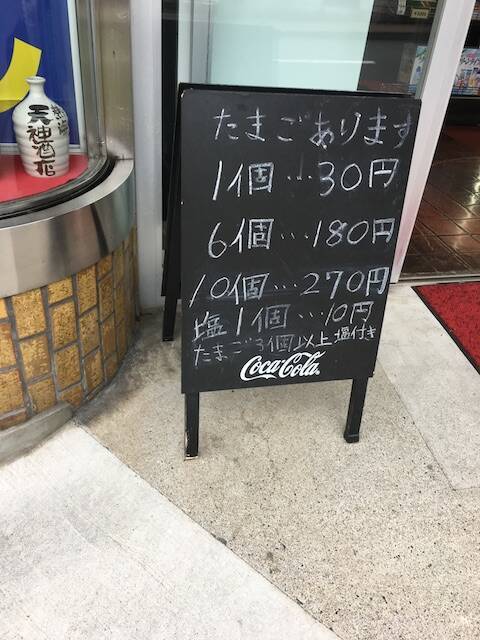 たまごあります
1個…30円
6個…180円
10個…270円
塩1個…10円
たまご3個以上塩付き
Coca-Cola
天神酒店